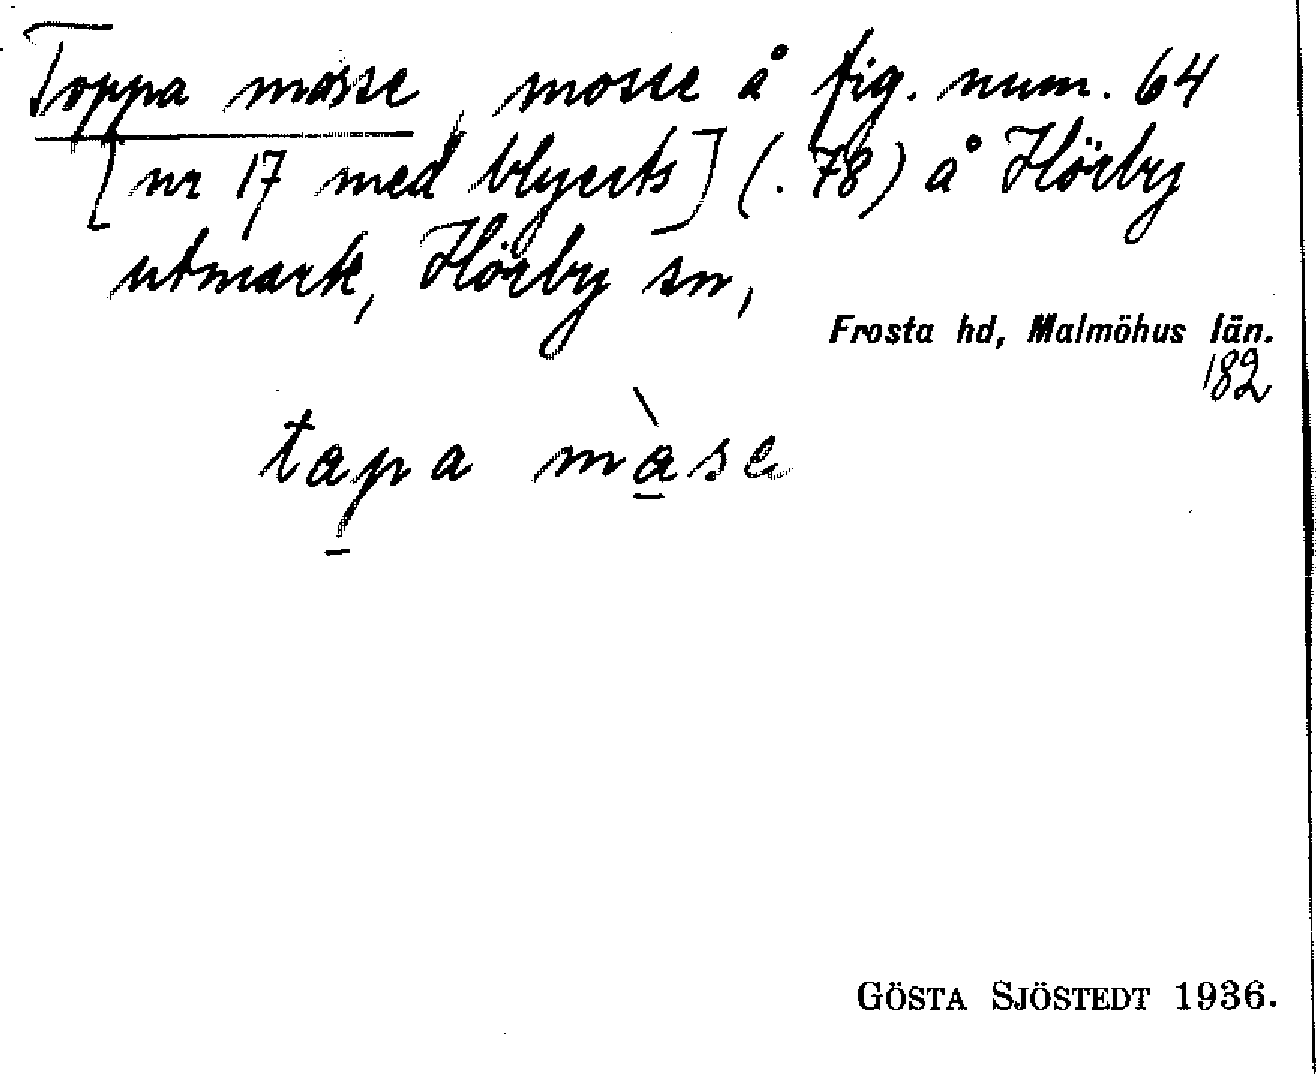 Toppa mosse, mosse å fig. num. 64
[nr 17 med blyerts] (. 78) å Hörby
utmark, Hörby sn,
Frosta hd, Malmöhus län.
182
tapa màse
GÖSTA SJÖSTEDT 1936.